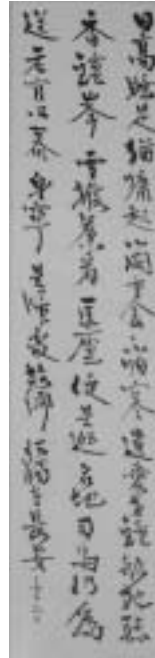 日高睡足猶慵起小閣重衾不怕寒遺愛寺鐘欹枕聽
香爐峯雪撥簾看匡廬便是逃名地司馬仍為
送老官心泰身寧是歸處故鄉何獨在長安